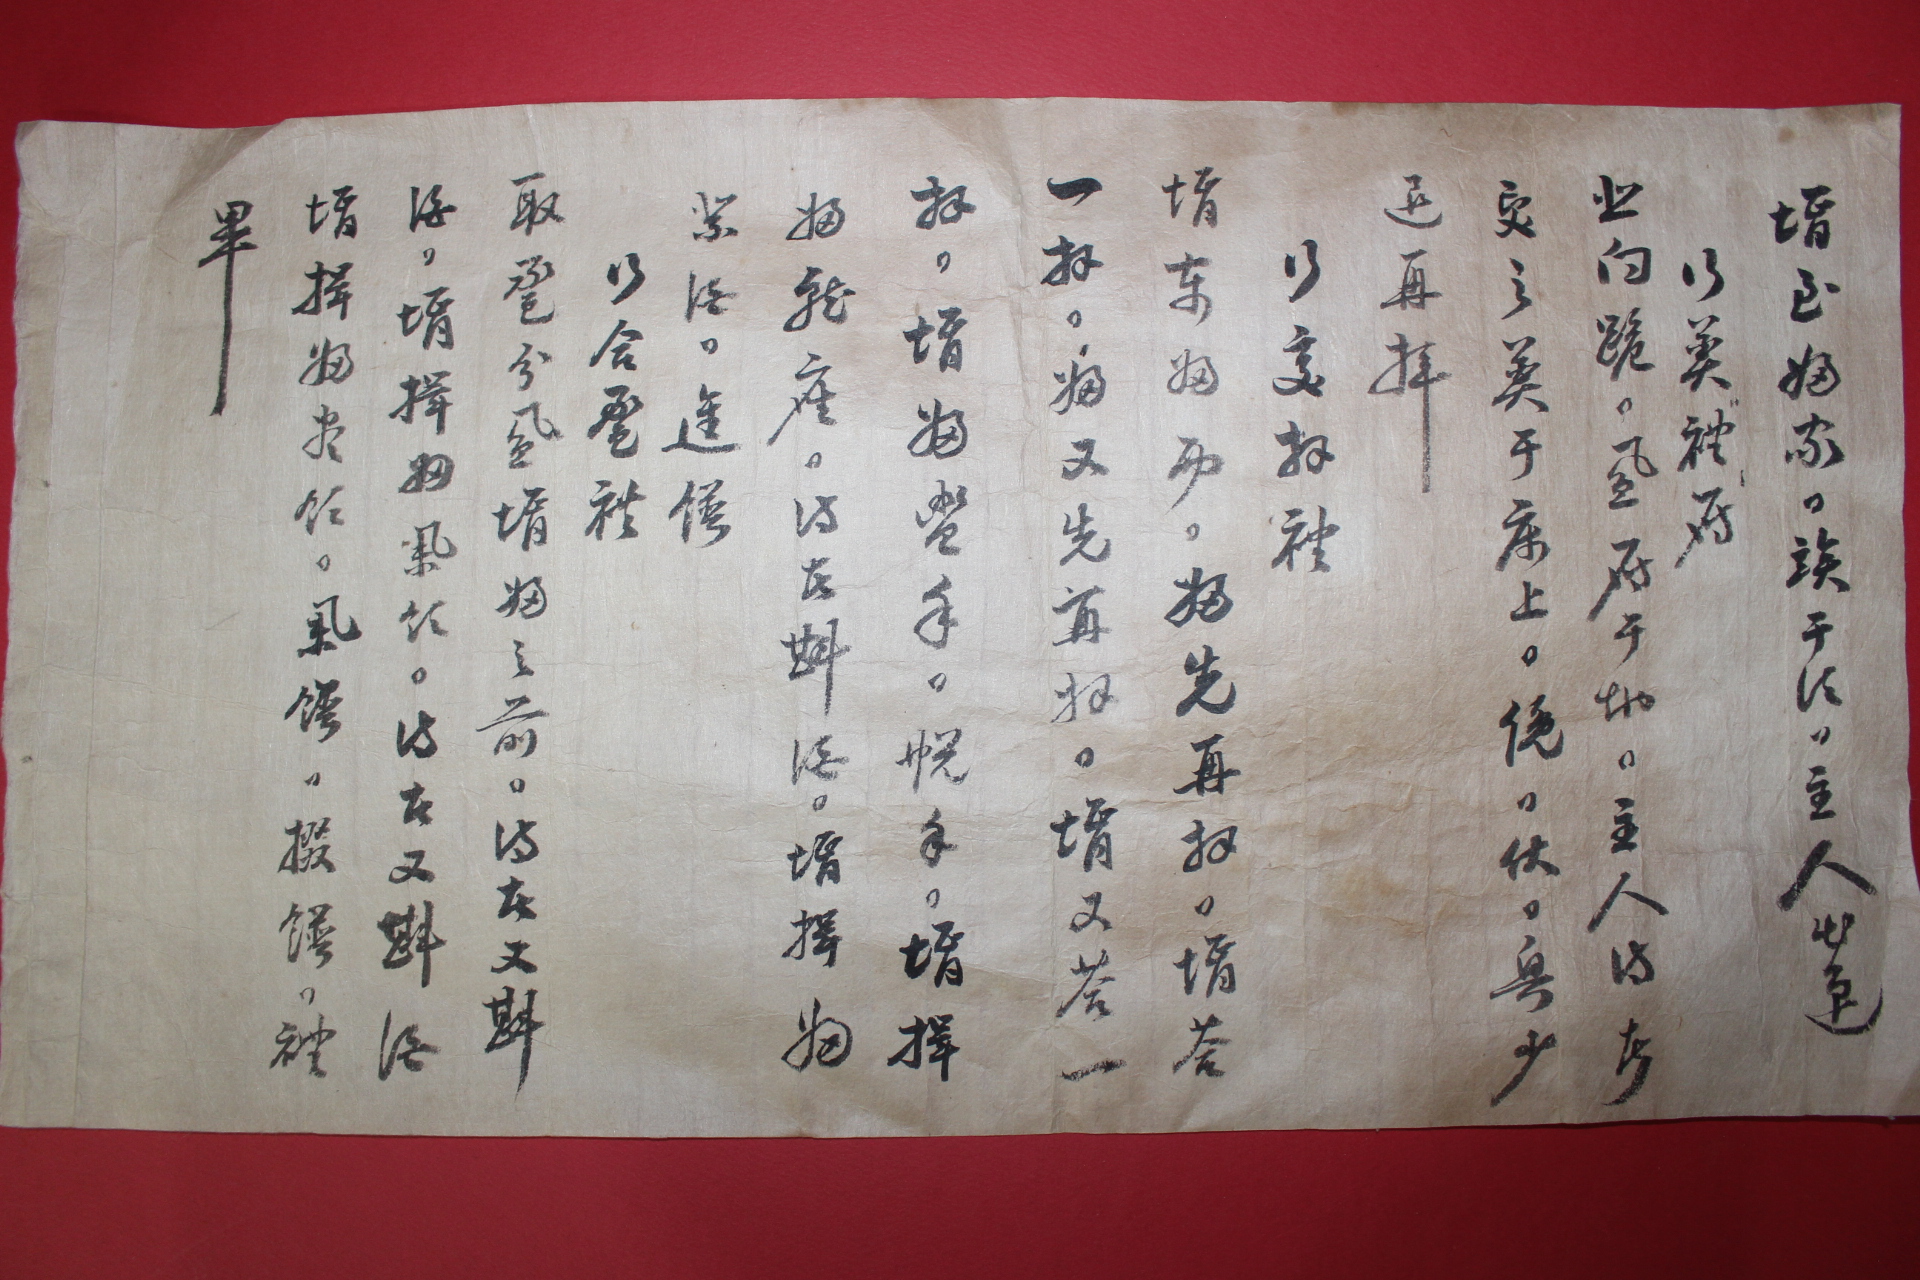 壻至婦家。竢于次。主人出迎
行奠禮雁
北向跪。置雁于地。主人侍者
受之奠于床上。俛。伏。興少
退再拜
行交拜禮
壻東婦西。婦先再拜。壻答
一拜。婦又先再拜。壻又答一
拜。壻婦盥手。帨手。壻揖
婦就座。侍者斟酒。壻揖婦
祭酒。進饌
行合巹禮
取巹分置壻婦之前。侍者又斟
酒。壻揖婦飮。侍者又斟酒
壻揖婦飮。饌。撤饌。禮
畢